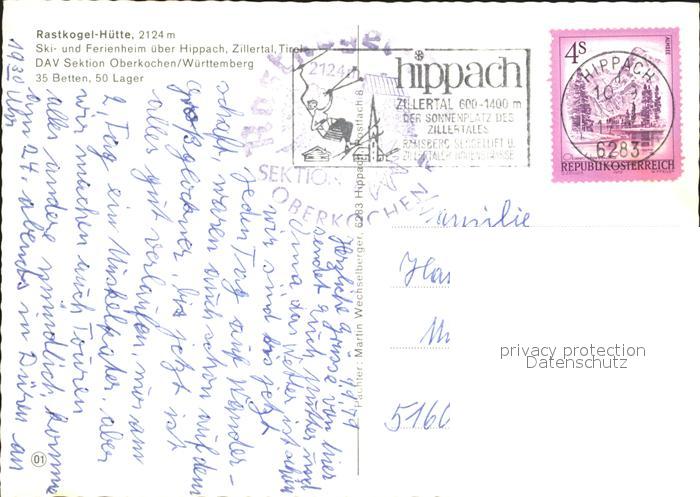 Rastkogel-Hütte, 2124 m
Ski- und Ferienheim über Hippach, Zillertal, Tirol
DAV Sektion Oberkochen/Württemberg
35 Betten, 50 Lager
Pächter: Martin Wechselberger, 6283 Hippach, Postfach 8
2124
SEKTION
OBERKOCHEN
hippach
ZILLERTAL 600-1400 m
DER SONNENPLATZ DES
ZILLERTALES
RAMSBERG SESSELLIFT U.
ZILLERTALER HÖHENSTRASSE
4s
HIPPACH
6283
REPUBLIK ÖSTERREICH
Herzliche Grüße von hier
sendet Euch Mutter und
Oma das Wetter ist schön
wir sind bis jetzt
jeden Tag auf Wander-
schaft, waren auch schon auf dem
Großglockner, bis jetzt ist
alles gut verlaufen, nur am
2. Tag ein Muskelkater, aber
wir machen auch Touren
alles andere mündlich komme
am 24. abends in Düren an
Familie
5160
privacy protection
Datenschutz
01